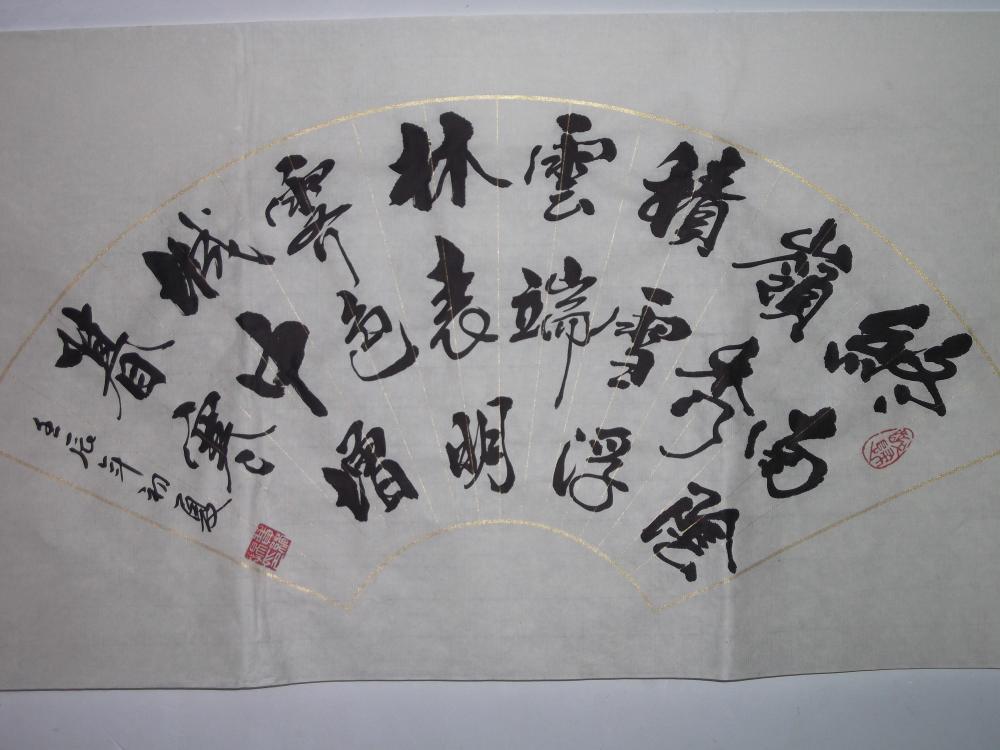 終南陰
嶺秀
積雪浮
雲端
林表明
霽色
城中增
暮寒
壬辰年初夏